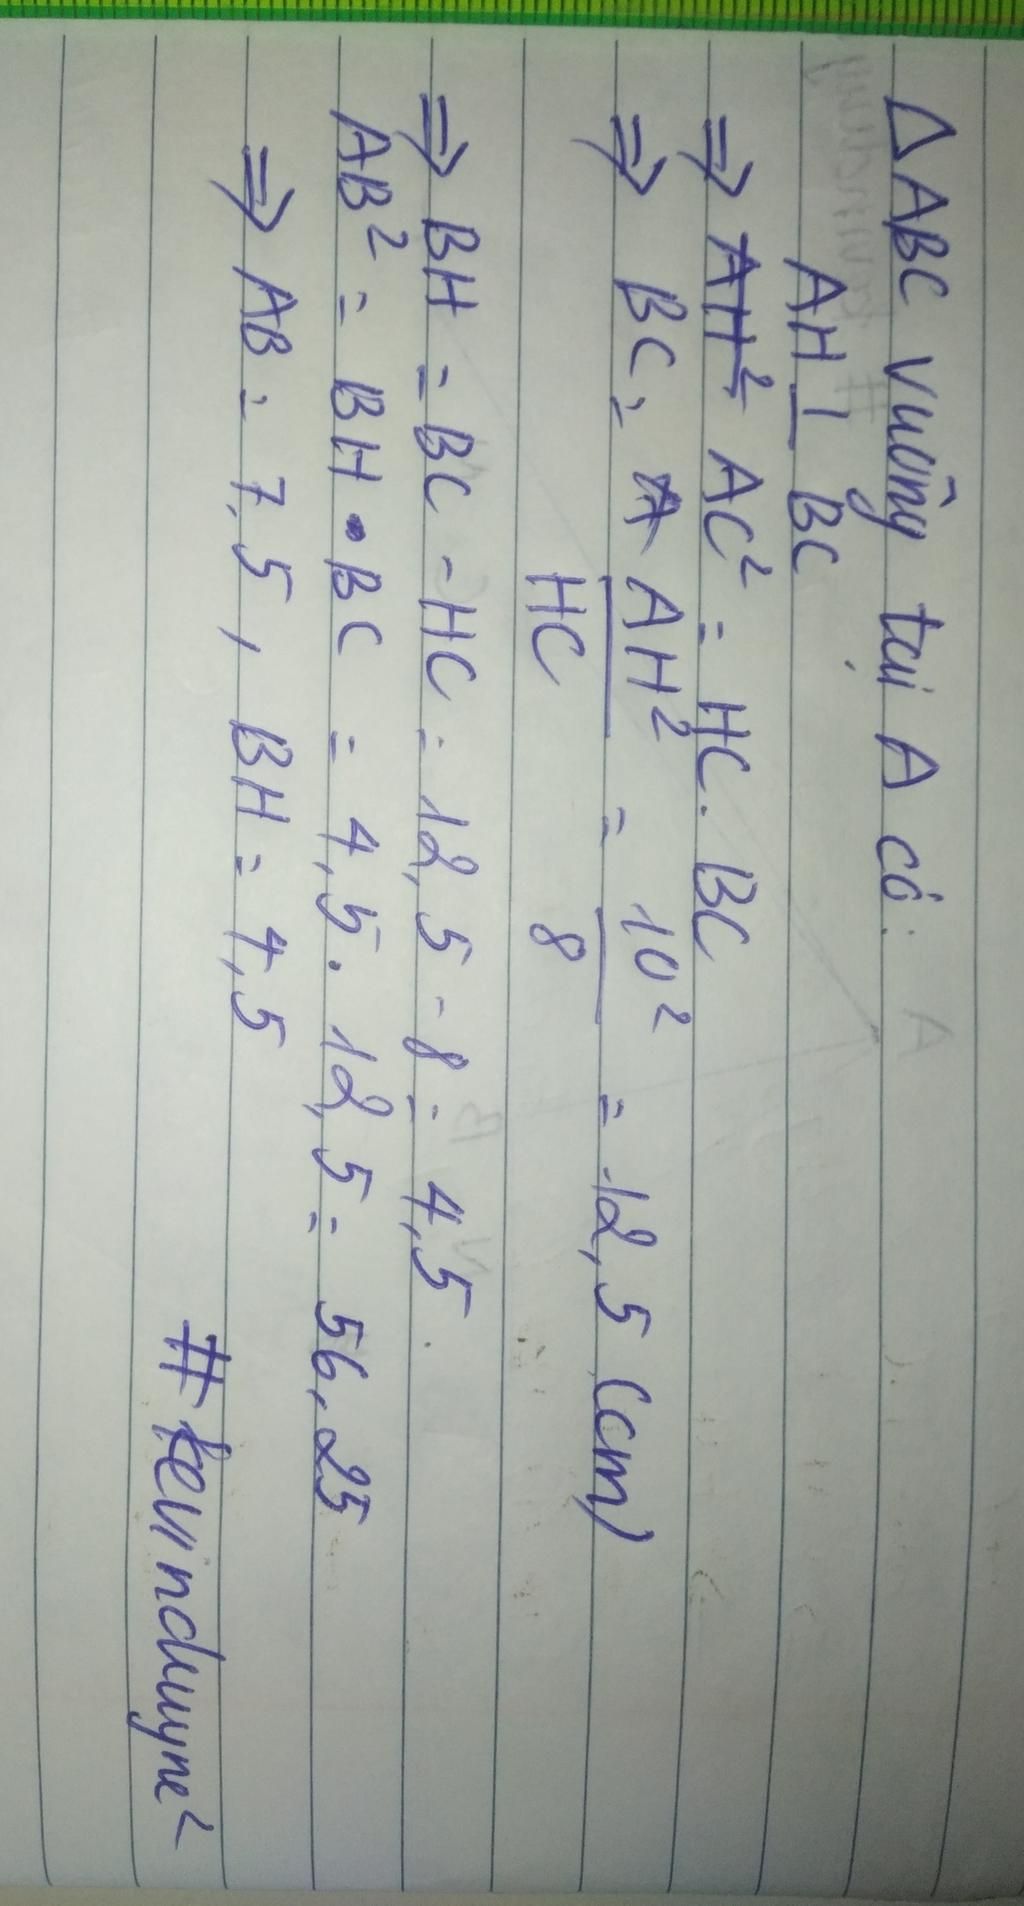 △ABC vuông tại A có:
AH ⊥ BC
⇒ AH² AC² = HC. BC
⇒ BC = A AH²/HC = 10²/8 = 12,5 (cm)
⇒ BH = BC - HC = 12,5 - 8 = 4,5
AB² = BH . BC = 4,5. 12,5 = 56,25
⇒ AB = 7,5, BH = 4,5
#kevinduyne²